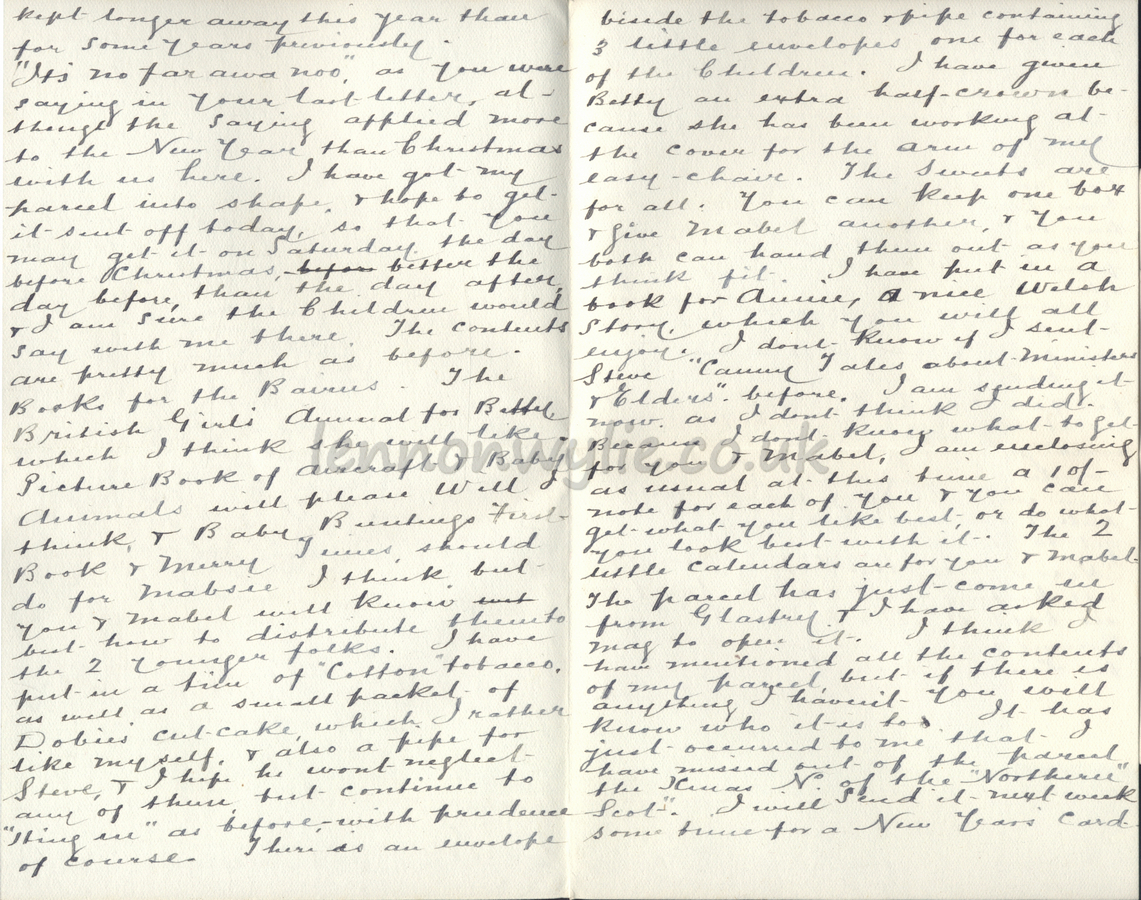 kept longer away this year than
for some years previously.
"It's no far awa noo", as you were
saying in your last letter, al-
though the saying applied more
to the New Year than Christmas
with us here. I have got my
parcel into shape, & hope to get
it sent off today, so that you
may get it on Saturday the day
before Christmas, before better the
day before, than the day after,
& I am sure the Children would
say with me there. The contents
are pretty much as before.
Books for the Bairns. The
British Girls Annual for Betty
which I think she will like,
Picture Book of aircraft & Baby
Animals will please Will I
think, & Baby Buntings First
Book & Merry Times, should
do for Mabsie I think, but
you & Mabel will know
but how to distribute them to
the 2 younger folks. I have
put in a tin of "Cotton" tobacco.
as well as a small packet of
Dobies cut-cake, which I rather
like myself, & also a pipe for
Steve, & I hope he wont neglect
any of these, but continue to
"Sting in" as before, with prudence
of course. There is an envelope
beside the tobacco & pipe containing
3 little envelopes one for each
of the Children. I have given
Betty an extra half-crown be-
cause she has been working at
the cover for the arm of my
easy-chair. The Sweets are
for all. You can keep one box
& give Mabel another, & you
both can hand them out as you
think fit. I have put in a
book for Annie, a nice Welsh
Story, which you will all
enjoy. I dont know if I sent
Steve "Canny Tales about Ministers
& Elders" before. I am sending it
now as I dont think I did.
Because I dont know what to get
for you & Mabel, I am enclosing
as usual at this time a 10/-
note for each of you & you can
get what you like best, or do what
you look best with it. The 2
little calendars are for you & Mabel.
The parcel has just come in
from Glastry & I have asked
Mag to open it. I think I
have mentioned all the contents
of my parcel, but if there is
anything I haven't you will
know who it is to. It has
just occurred to me that I
have missed out of the parcel
the Xmas N. of the "Northern
Scot". I will send it next week
some time for a New Years Card
lennonwylie.co.uk